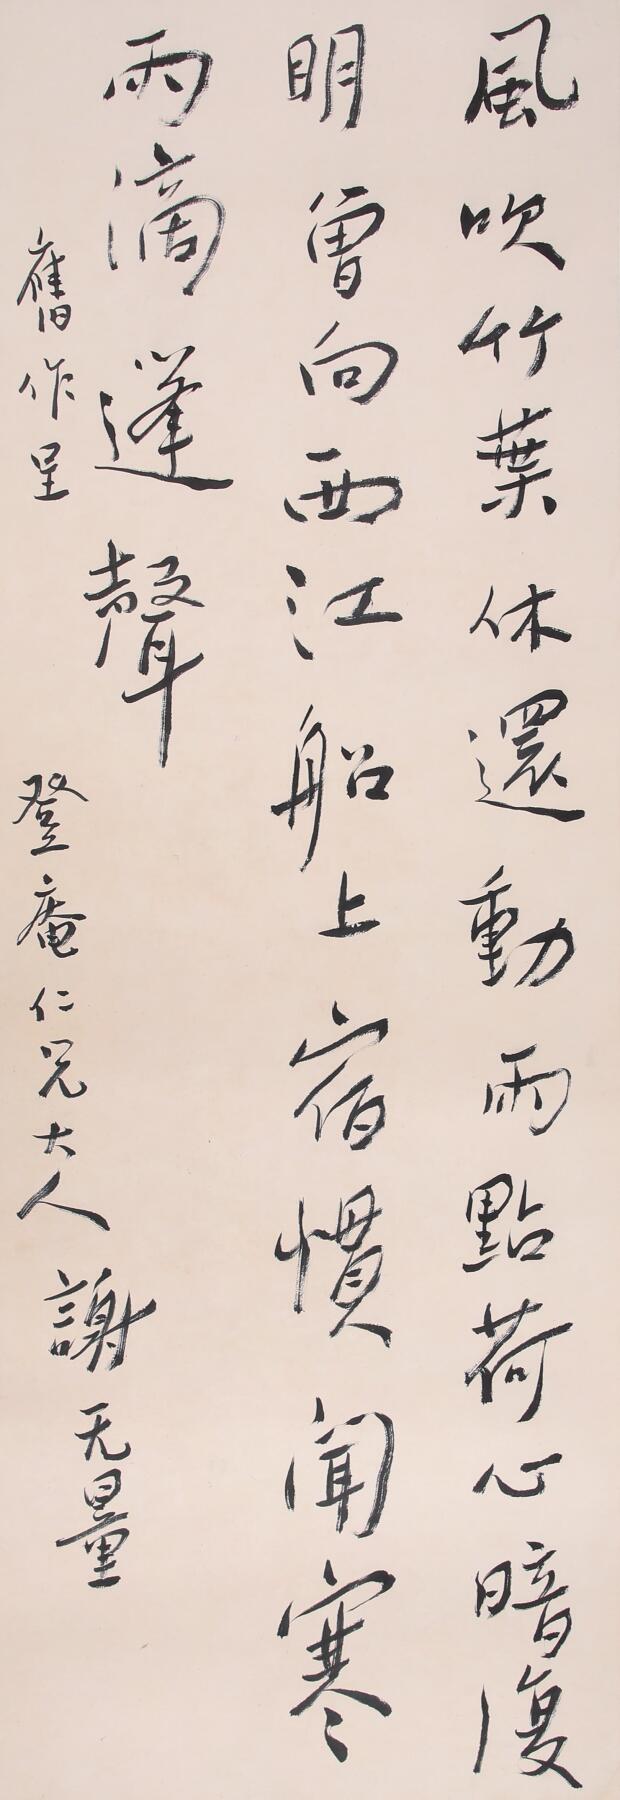 風吹竹葉休還動雨點荷心暗復
明曾向西江船上宿慣聞寒
雨滴篷聲
舊作呈
登庵仁兄大人
謝无量